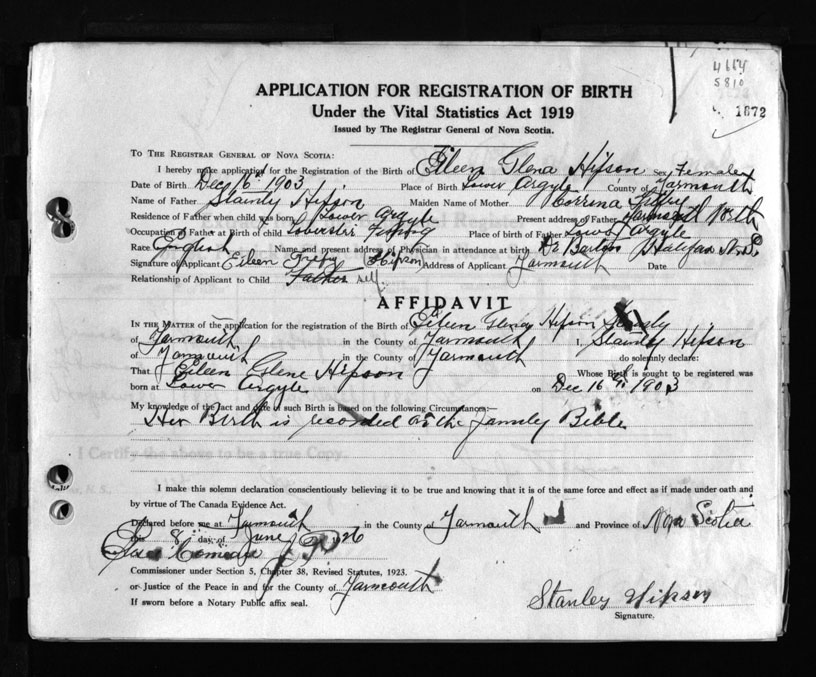 4664
5810
1872
APPLICATION FOR REGISTRATION OF BIRTH
Under the Vital Statistics Act 1919
Issued by The Registrar General of Nova Scotia.
TO THE REGISTRAR GENERAL OF NOVA SCOTIA:
I hereby make application for the Registration of the Birth of Eileen Glena Hipson sex Female
Date of Birth Dec 16th 1903 Place of Birth Lower Argyle County of Yarmouth
Name of Father Stanly Hipson Maiden Name of Mother Corrina
Residence of Father when child was born Lower Argyle Present address of Father Yarmouth North
Occupation of Father at Birth of child Lobster Fishing Place of birth of Father Lower Argyle
Race English Name and present address of Physician in attendance at birth Dr Barton Halifax N.S.
Signature of Applicant Eileen Trefry (Hipson) Address of Applicant Yarmouth Date
Relationship of Applicant to Child Father self
AFFIDAVIT
IN THE MATTER of the application for the registration of the Birth of Eileen Glena Hipson
of Yarmouth in the County of Yarmouth I, Stanly Hipson
of Yarmouth in the County of Yarmouth do solemnly declare:
That Eileen Glene Hipson Whose Birth is sought to be registered was
born at Lower Argyle on Dec 16th 1903
My knowledge of the fact and date of such Birth is based on the following Circumstances:—
Her Birth is recorded on the family Bible
I Certify the above to be a true Copy.
I make this solemn declaration conscientiously believing it to be true and knowing that it is of the same force and effect as if made under oath and
by virtue of The Canada Evidence Act.
Declared before me at Yarmouth in the County of Yarmouth and Province of Nova Scotia
this 8 day of June
Commissioner under Section 5, Chapter 38, Revised Statutes, 1923.
or Justice of the Peace in and for the County of Yarmouth
If sworn before a Notary Public affix seal.
Stanley Hipson
Signature.